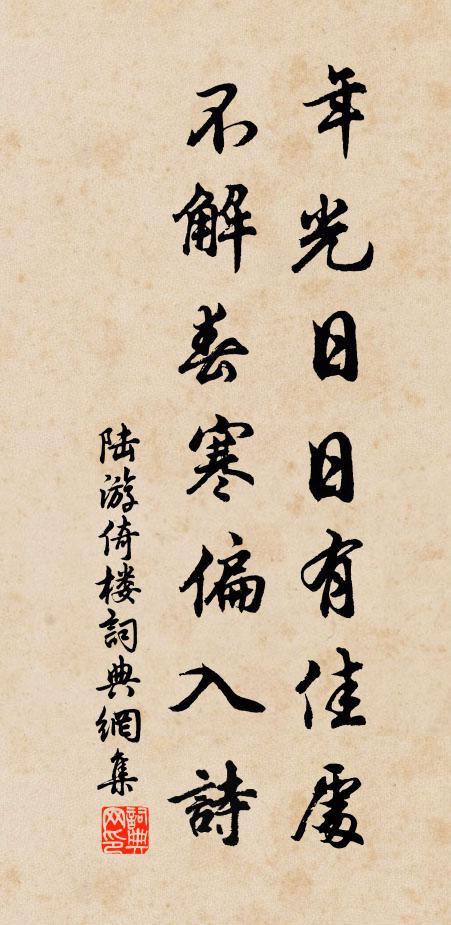 年光日日有佳處
不解春寒偏入詩
陆游倚楼詞典網集
詞典网印